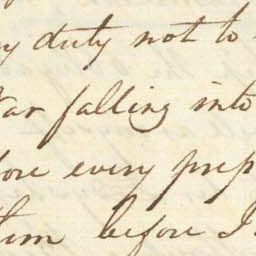 my duty not to
War falling into
fore every prep
them before I